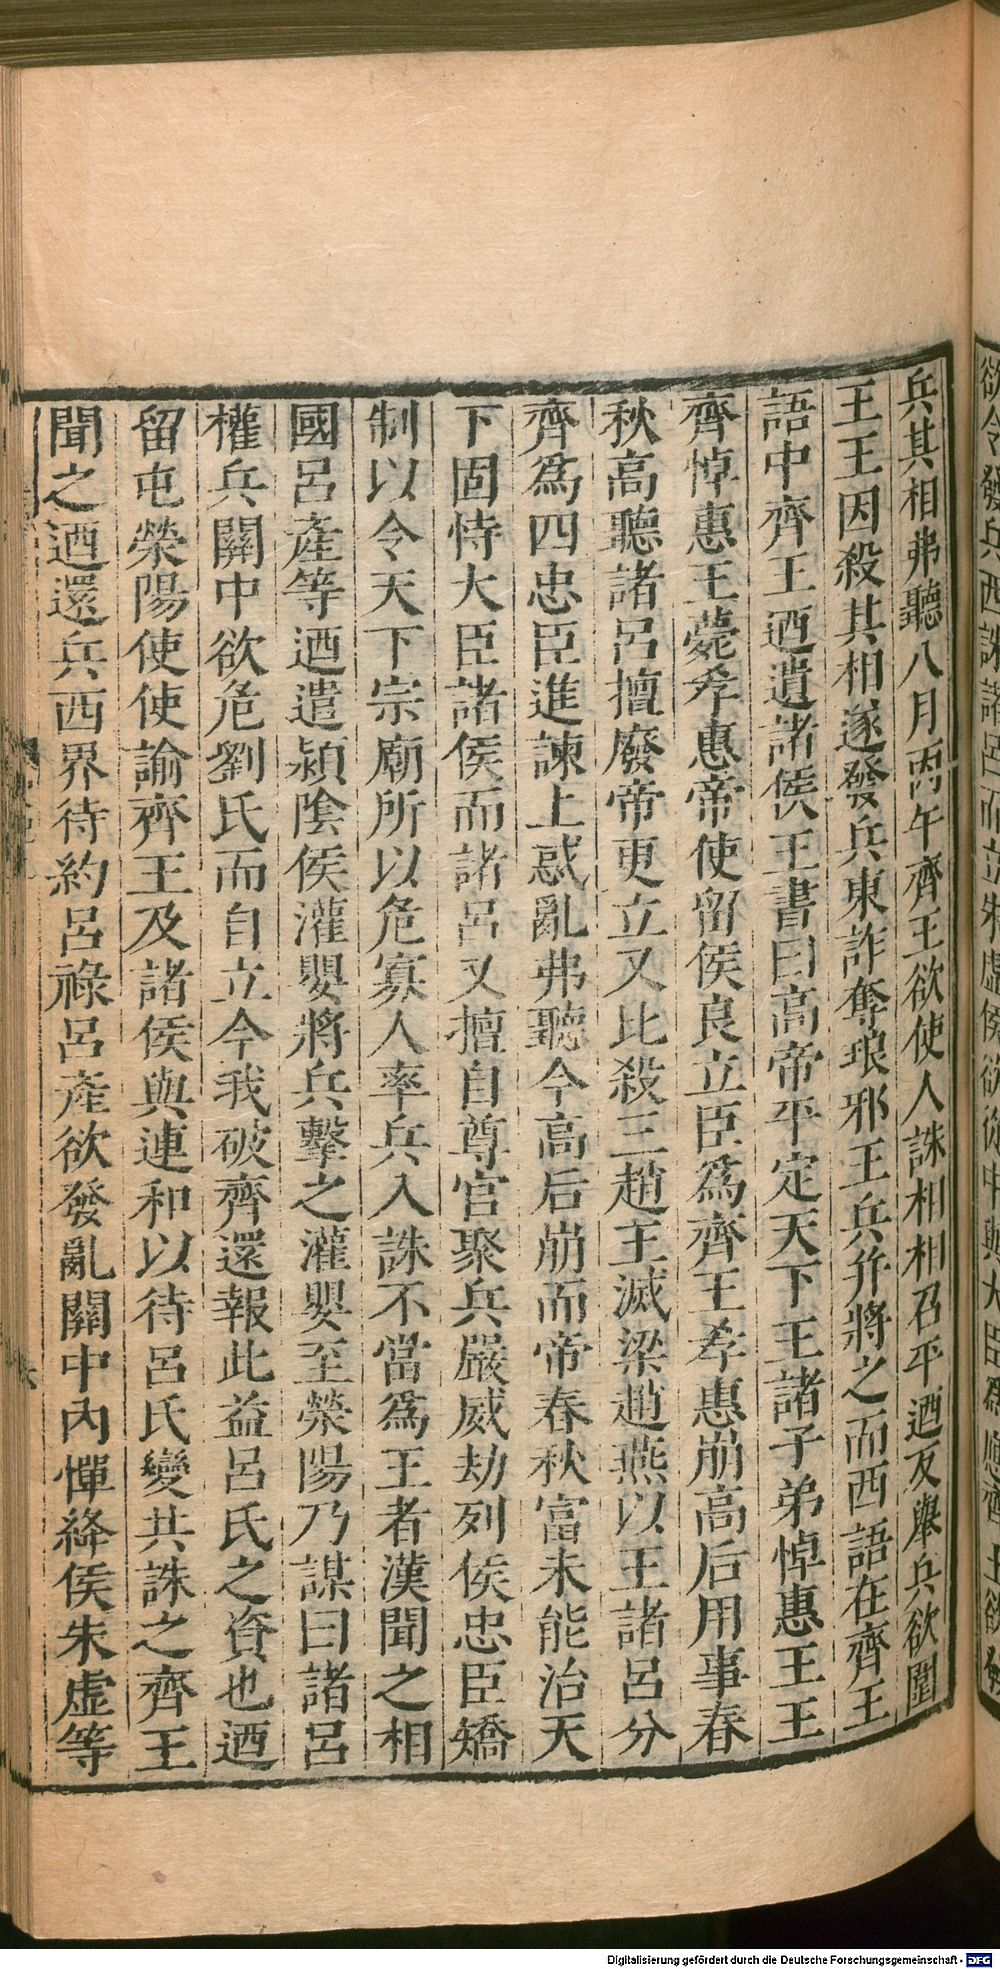 欲令發兵西誅諸呂而立朱虛侯欲從中與大臣為應齊王欲發
兵其相弗聽八月丙午齊王欲使人誅相相召平迺反舉兵欲圍
王王因殺其相遂發兵東詐奪琅邪王兵并將之而西語在齊王
語中齊王迺遺諸侯王書曰高帝平定天下王諸子弟悼惠王王
齊悼惠王薨孝惠帝使留侯良立臣為齊王孝惠崩高后用事春
秋高聽諸呂擅廢帝更立又比殺三趙王滅梁趙燕以王諸呂分
齊為四忠臣進諫上惑亂弗聽今高后崩而帝春秋富未能治天
下固恃大臣諸侯而諸呂又擅自尊官聚兵嚴威劫列侯忠臣矯
制以令天下宗廟所以危寡人率兵入誅不當為王者漢聞之相
國呂產等迺遣潁陰侯灌嬰將兵擊之灌嬰至滎陽乃謀曰諸呂
權兵關中欲危劉氏而自立今我破齊還報此益呂氏之資也迺
留屯滎陽使使諭齊王及諸侯與連和以待呂氏變共誅之齊王
聞之迺還兵西界待約呂祿呂產欲發亂關中內憚絳侯朱虛等
Digitalisierung gefördert durch die Deutsche Forschungsgemeinschaft - DFG